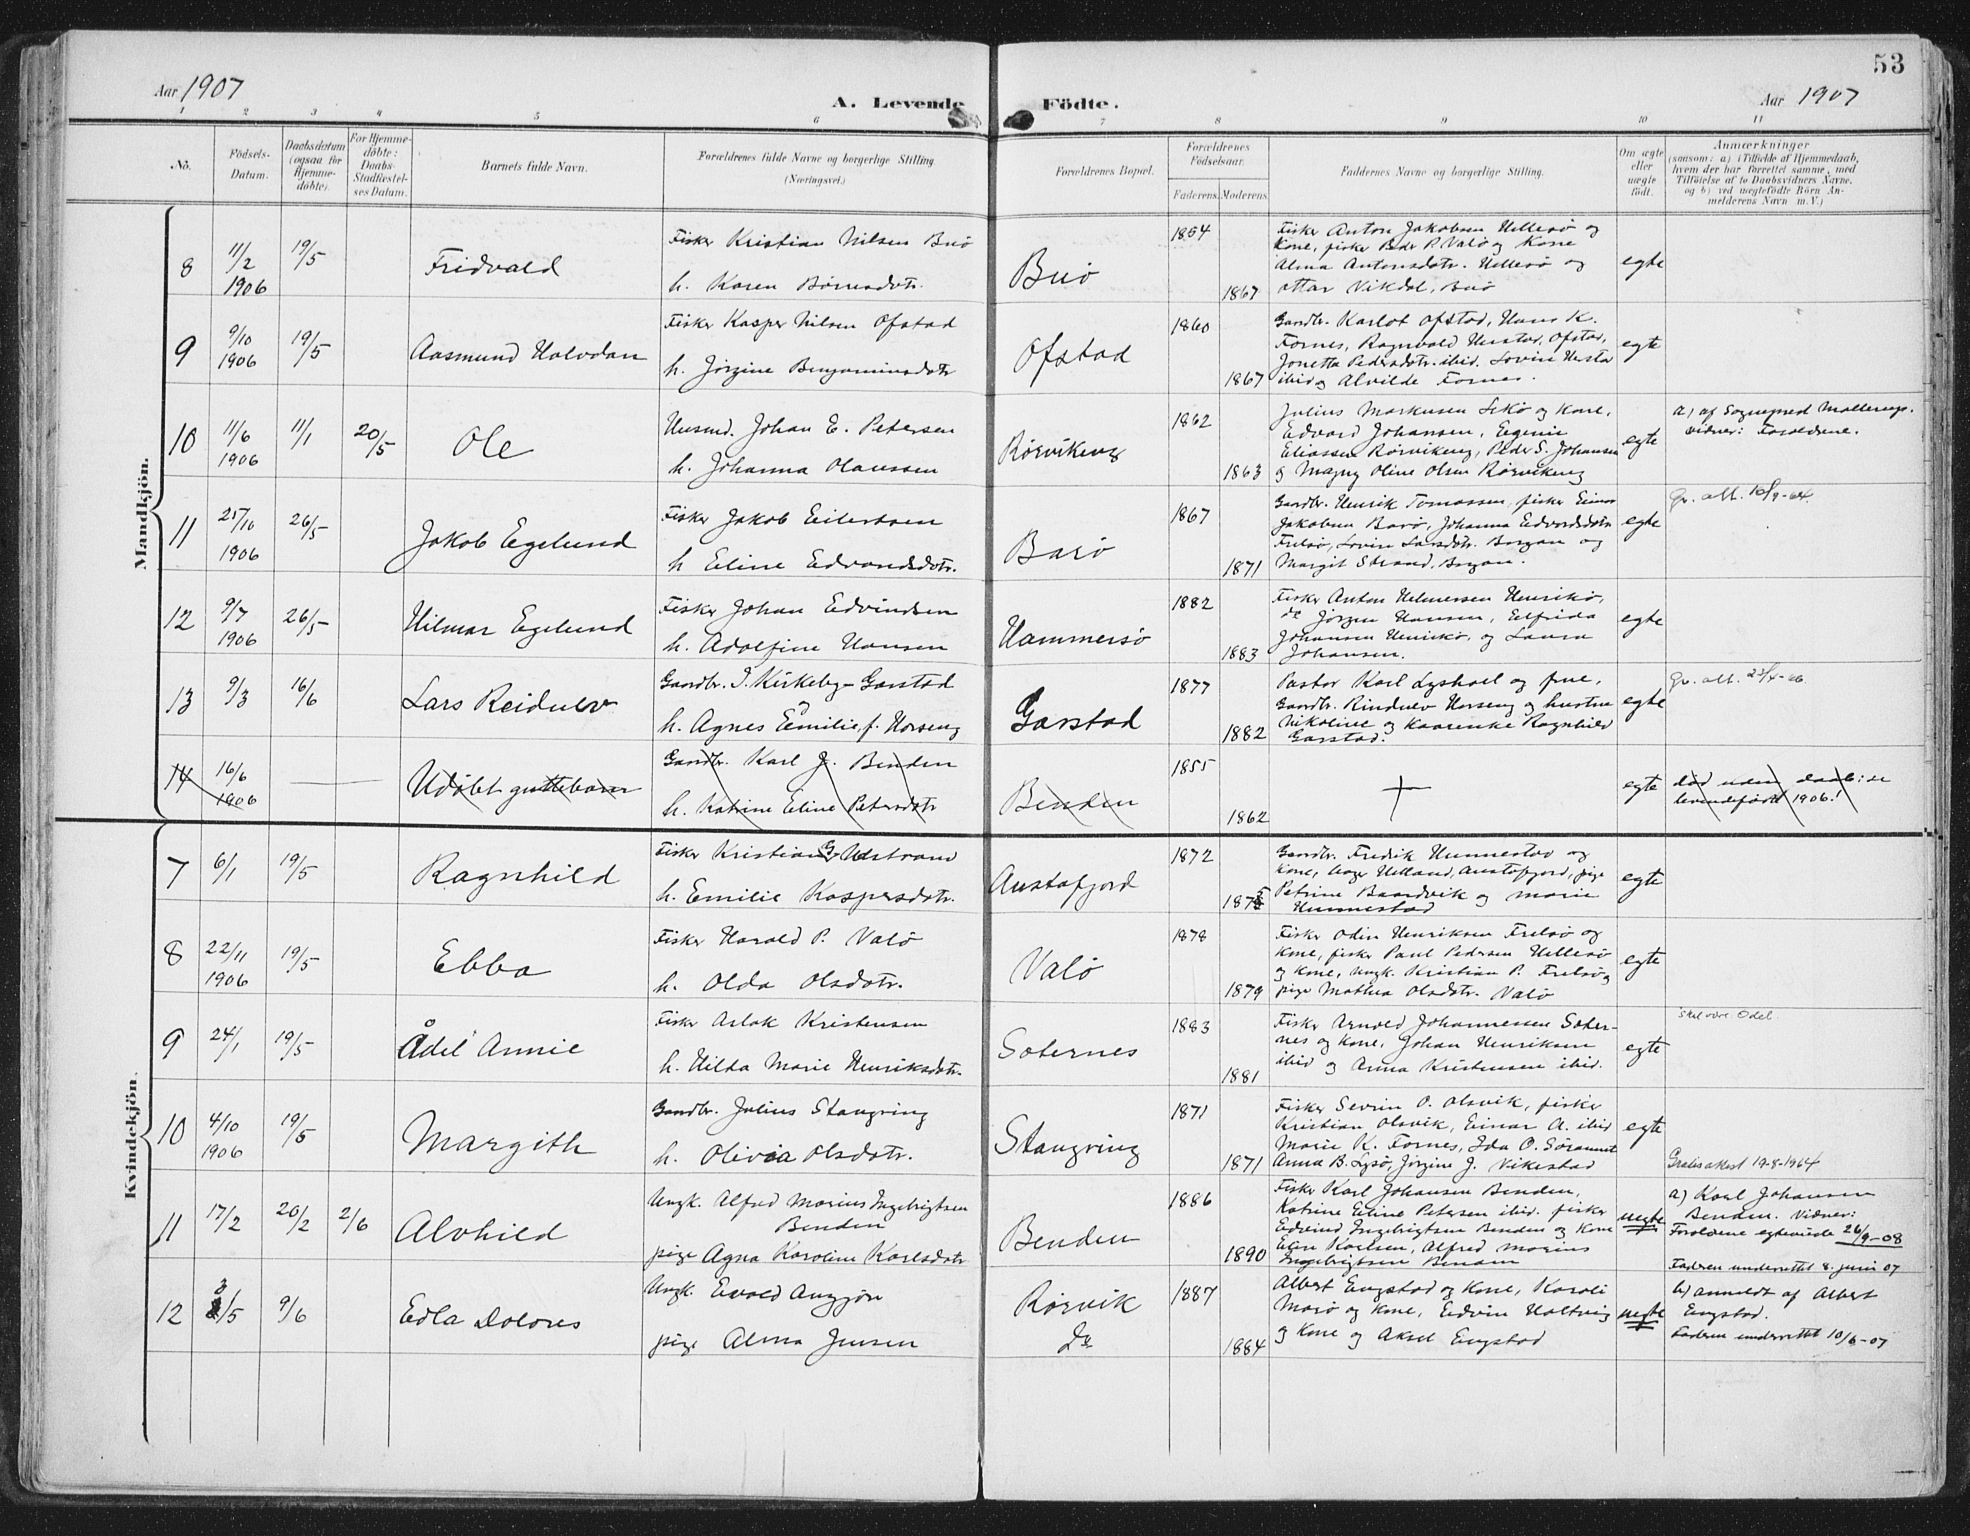 53
Aar 1907
A. Levende Födte.
Aar 1907
1 2 3 4 5 6 7 8 9 10 11
No.
Födsels-Datum.
Daabsdatum (ogsaa for Hjemmedöbte).
For Hjemmedöbte: Daabs Stadfæstelses Datum.
Barnets fulde Navn.
Forældrenes fulde Navne og borgerlige Stilling (Næringsvei.)
Forældrenes Bopæl.
Forældrenes Födselsaar.
Faderens. Moderens.
Faddernes Navne og borgerlige Stilling.
Om ægte eller uægte födt.
Anmærkninger
(saasom: a) i Tilfælde af Hjemmedaab, hvem der har forrettet samme, med Tilföielse af to Daabsvidners Navne, og b) ved uægtefödte Börn Anmelderens Navn m. V.)
Mandkjön.
8 11/2 1906 19/5 Fridvald
Fisker Kristian Nilsen Buø
h. Karen Børnsdotr.
Buø 1854 1867
Fisker Anton Jakobsen Hillesø og
kone, fisker Peder P. Valø og kone
Alma Antonsdotr. Hillesø og
Ottar Vikdal, Buø
egte
9 9/10 1906 19/5 Aasmund Halvdan
Fisker Kasper Nilsen Ofstad
h. Jørgine Benjaminsdotr
Ofstad 1860 1867
Gaardbr. Karlot Ofstad, Hans K.
Fornes, Ragnvald Ofstad,
Jonetta Pedersdotr. ibid. Lovise
ibid og Alvilde Fornes.
egte
10 11/6 1906 11/1 20/5 Ole
Husmd. Johan E. Petersen
h. Johanna Olaussen
Rørvikeng 1862 1863
Julius Markusen og kone,
Edvard Johansen, Eugenie
Eliassen Rørvikeng, Peder S. Johansen
og Magny Oline Olsen Rørvikeng
egte
a) af Sogneprest
Vidner: Forældrene.
11 25/10 1906 26/5 Jakob Egelund
Fisker Jakob Eilertsen
h Eline Edvardsdotr.
Barø 1867 1871
Gaardbr. Henrik Tomassen, fisker Einar
Jakobsen Barø, Johanna Edvardsdotr
Frelsø, Lovise Larsdotr. Borgan og
Margit Strand, Borgan.
egte
gr. att.
12 9/7 1906 26/5 Hilmar Egelund
Fisker Johan Edvindsen
h. Adolfine Hansen
Hammersø 1882 1883
Fisker Anton Helmersen Henrikø,
do Jørgen Hansen, Elfrida
Johansen Henrikø, og Laura
Johansen.
egte
13 9/3 16/6 Lars Reidulv
Gaardbr. J. Kirkeby-Garstad
h. Agnes Emilie, f. Horseng
Garstad 1877 1882
Pastor Karl Lyshoel og frue,
Gaardbr. Rindulv Horseng og hustru
Nikoline og Kaarenke Ragnhild
Garstad.
egte
gr. att.
14 16/6 1906 Udøbt guttebarn
Gaardbr. Karl J. Benden
h. Katrine Eline Petersdotr
Benden 1855 1862
egte
død uden daab: se
levendefødte 1906!
Kvindekjön.
7 6/1 19/5 Ragnhild
Fisker Kristian G. Ulstrand
h. Emilie Kaspersdotr.
Austafjord 1872
Gaardbr. Fredrik Hunnestad og
kone, Aage Helland, Austafjord, pige
Petrine Baardvik og Marie
Hunnestad
egte
8 22/11 1906 19/5 Ebba
Fisker Harald P. Valø
h. Olda Olsdotr.
Valø 1878 1879
Fisker Odin Henriksen Frelsø og
kone, fisker Paul Pedersen Hillesø
og kone, ungk. Kristian P. Frelsø og
pige Mathea Olsdotr. Valø
egte
9 24/1 19/5 Ådel Annie
Fisker Aslak Kristensen
h. Hilda Marie Henriksdotr.
Saternes 1883 1881
Fisker Arnold Johannessen Sater-
nes og kone, Johan Henriksen
ibid og Anna Kristensen ibid.
egte
skal være Odel.
10 4/10 1906 19/5 Margith
Gaardbr. Julius Stangring
h. Olivia Olsdotr.
Stangring 1871 1871
Fisker Sevrin O. Olsvik, fisker
Kristian Olsvik, Einar A. ibid
Marie K. Fornes, Ida O.
Anna B. Lysø, Jørgine J. Vikestad
egte
Gratisattest 19-8-1964
11 17/2 20/2 2/6 Alvhild
Ungk. Alfred Marius Ingebrigtsen
Benden
pige Agna Karoline Karlsdotr
Benden 1886 1890
Fisker Karl Johansen Benden,
Katrine Eline Petersen ibid. fisker
Edvind Ingebrigtsen Benden og kone
Eline Karlsen, Alfred Marius
Ingebrigtsen Benden
uegte
a) Karl Johansen
Benden. Vidner:
Forældrene egteviede 26/9-08
Faderen underrettet 8. juni 07
12 3/5 9/6 Edla Dolores
Ungk. Evald Angjøn
pige Alma Jensen
Rørvik
Do
1887 1884
Albert Engstad og kone, Karoli
Marø og kone, Edvin Holtvig
og kone og Aksel Engstad
uegte
b) anmeldt af Albert
Engstad.
Faderen underrettet 10/6-07